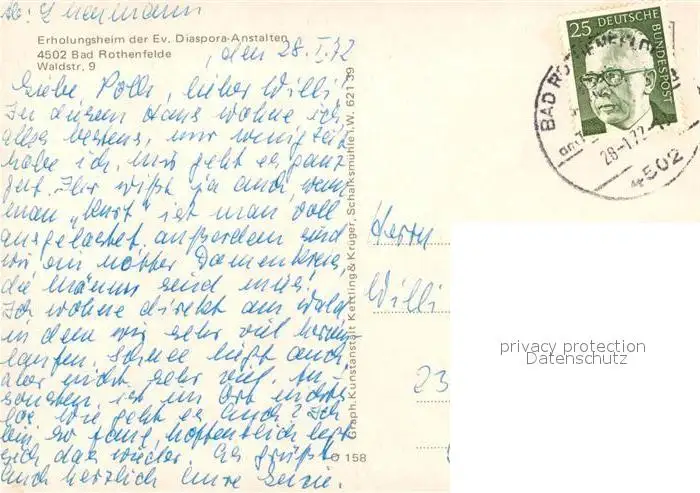 Erholungsheim der Ev. Diaspora-Anstalten
4502 Bad Rothenfelde
Waldstr. 9
, den 28.I.72
Liebe Polly, lieber Willi!
In diesem Haus wohne ich
alles bestens, nur wenig Zeit
habe ich, mir geht es ganz
gut. Ihr wißt ja auch, wenn
man "kurt" ist man voll
ausgelastet, außerdem sind
wir ein netter Damenkreis,
die Männer sind mies!
Ich wohne direkt am Wald
in dem wir sehr viel herum
laufen, Schnee liegt auch,
aber nicht sehr viel. An-
sonsten ist im Ort nichts
los. Wie geht es Euch? Ich
bin so faul, hoffentlich legt
sich das wieder. Es grüßt
Euch herzlich Eure
Graph. Kunstanstalt Kettling & Krüger, Schalksmühle i.W. 621 39
O 158
25 DEUTSCHE BUNDESPOST
BAD ROTHENFELDE
28-1.72
4502
Herrn
Willi
23
privacy protection
Datenschutz